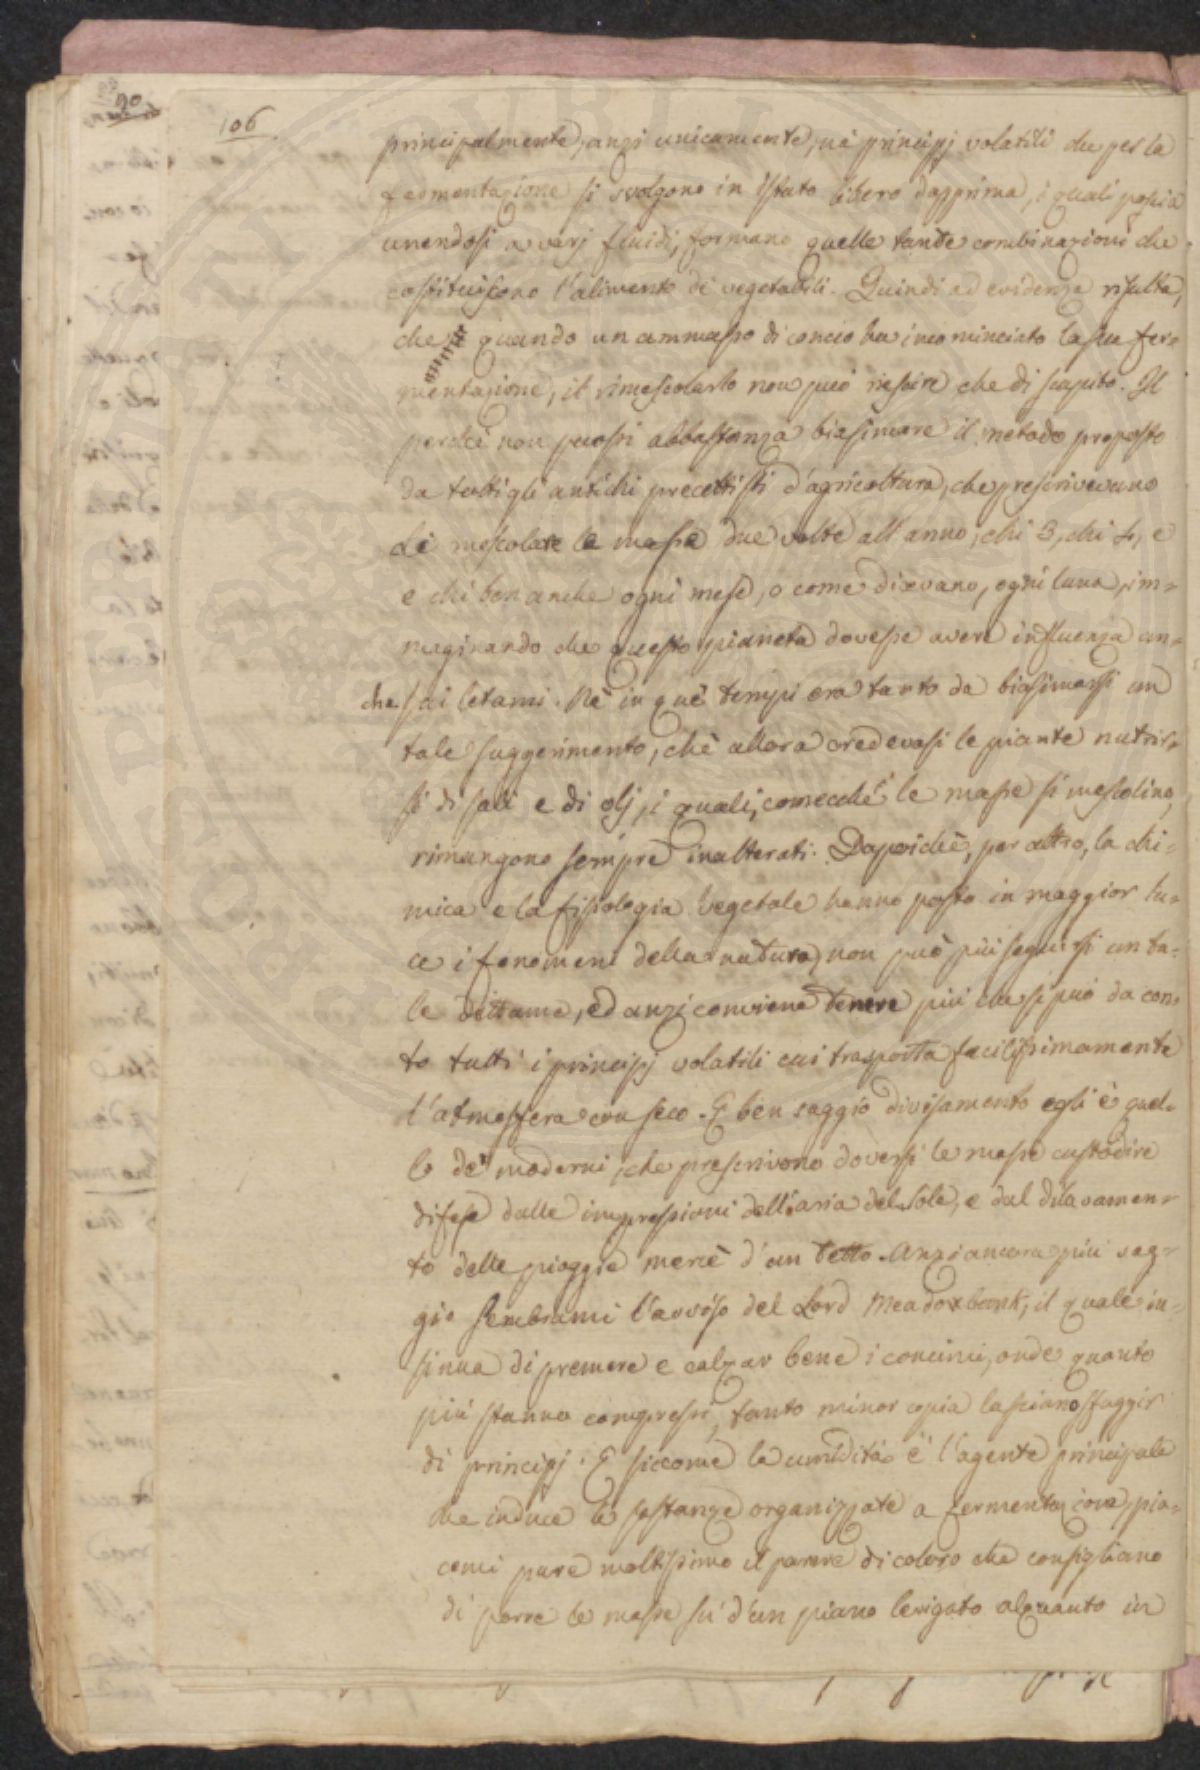 90
106
principalmente, anzi unicamente, ne' principj volatili che per la
fermentazione si svolgono in istato libero dapprima, i quali poscia
unendosi a varj fluidi, formano quelle tante combinazioni che
costituiscono l'alimento de' vegetabili. Quindi ad evidenza risulta,
che quando un ammasso di concio ha incominciato la sua fer-
mentazione, il rimescolarlo non può riescire che di scapito. Il
perchè non puossi abbastanza biasimare il metodo proposto
da tutti gli antichi precettisti d'agricoltura, che prescrivevano
di mescolare le masse due volte all'anno, chi 3, chi 4, e
e chi ben anche ogni mese, o come dicevano, ogni luna, im-
maginando che questo pianeta dovesse avere influenza an-
che sui letami. Nè in que' tempi era tanto da biasimarsi un
tale suggerimento, chè allora credevasi le piante nutrir-
si di sali e di olj, i quali, comecché le masse si mescolino,
rimangono sempre inalterati. Dapoichè, per altro, la chi-
mica e la fisiologia vegetale hanno posto in maggior lu-
ce i fenomeni della natura, non può più seguirsi un ta-
le dettame, ed anzi conviene tenere più che si può da con-
to tutti i principj volatili cui trasporta facilissimamente
l'atmosfera con seco. E ben saggio divisamento egli è quel-
lo de' moderni, che prescrivono doversi le masse custodire
difese dalle impressioni dell'aria del sole, e dal dilavamen-
to delle pioggie mercè d'un tetto. Anzi ancora più sag-
gio sembrami l'avviso del Lord Meadowbank, il quale in-
sinua di premere e calzar bene i concimi, onde quanto
più stanno compressi, tanto minor copia lasciano sfuggir
di principj. E siccome la umidità è l'agente principale
che induce le sostanze organizzate a fermentazione, pia-
cemi pure moltissimo il parere di coloro che consigliano
di porre le masse su d'un piano levigato alquanto in